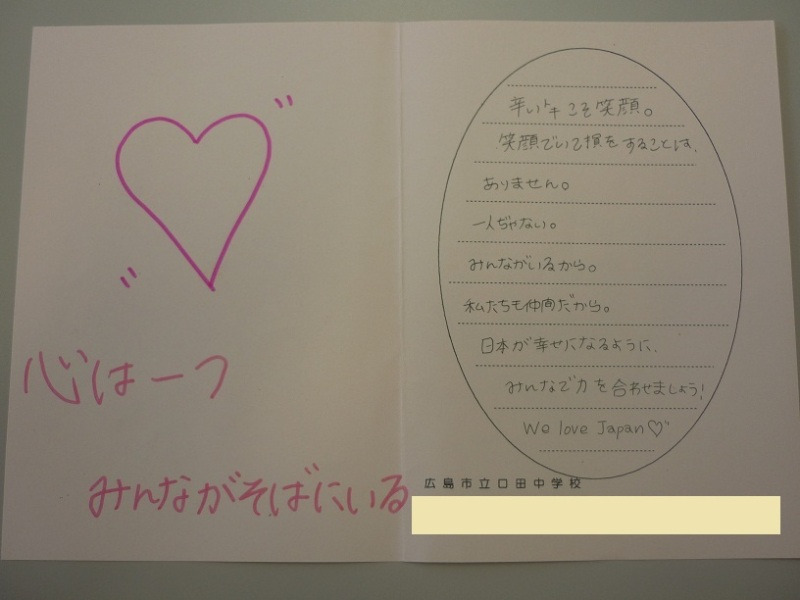 心は一つ
みんながそばにいる
辛いトキこそ笑顔。
笑顔でいて損をすることは、
ありません。
一人ぢゃない。
みんながいるから。
私たちも仲間だから。
日本が幸せになるように、
みんなで力を合わせましょう!
We love Japan♡
広島市立口田中学校